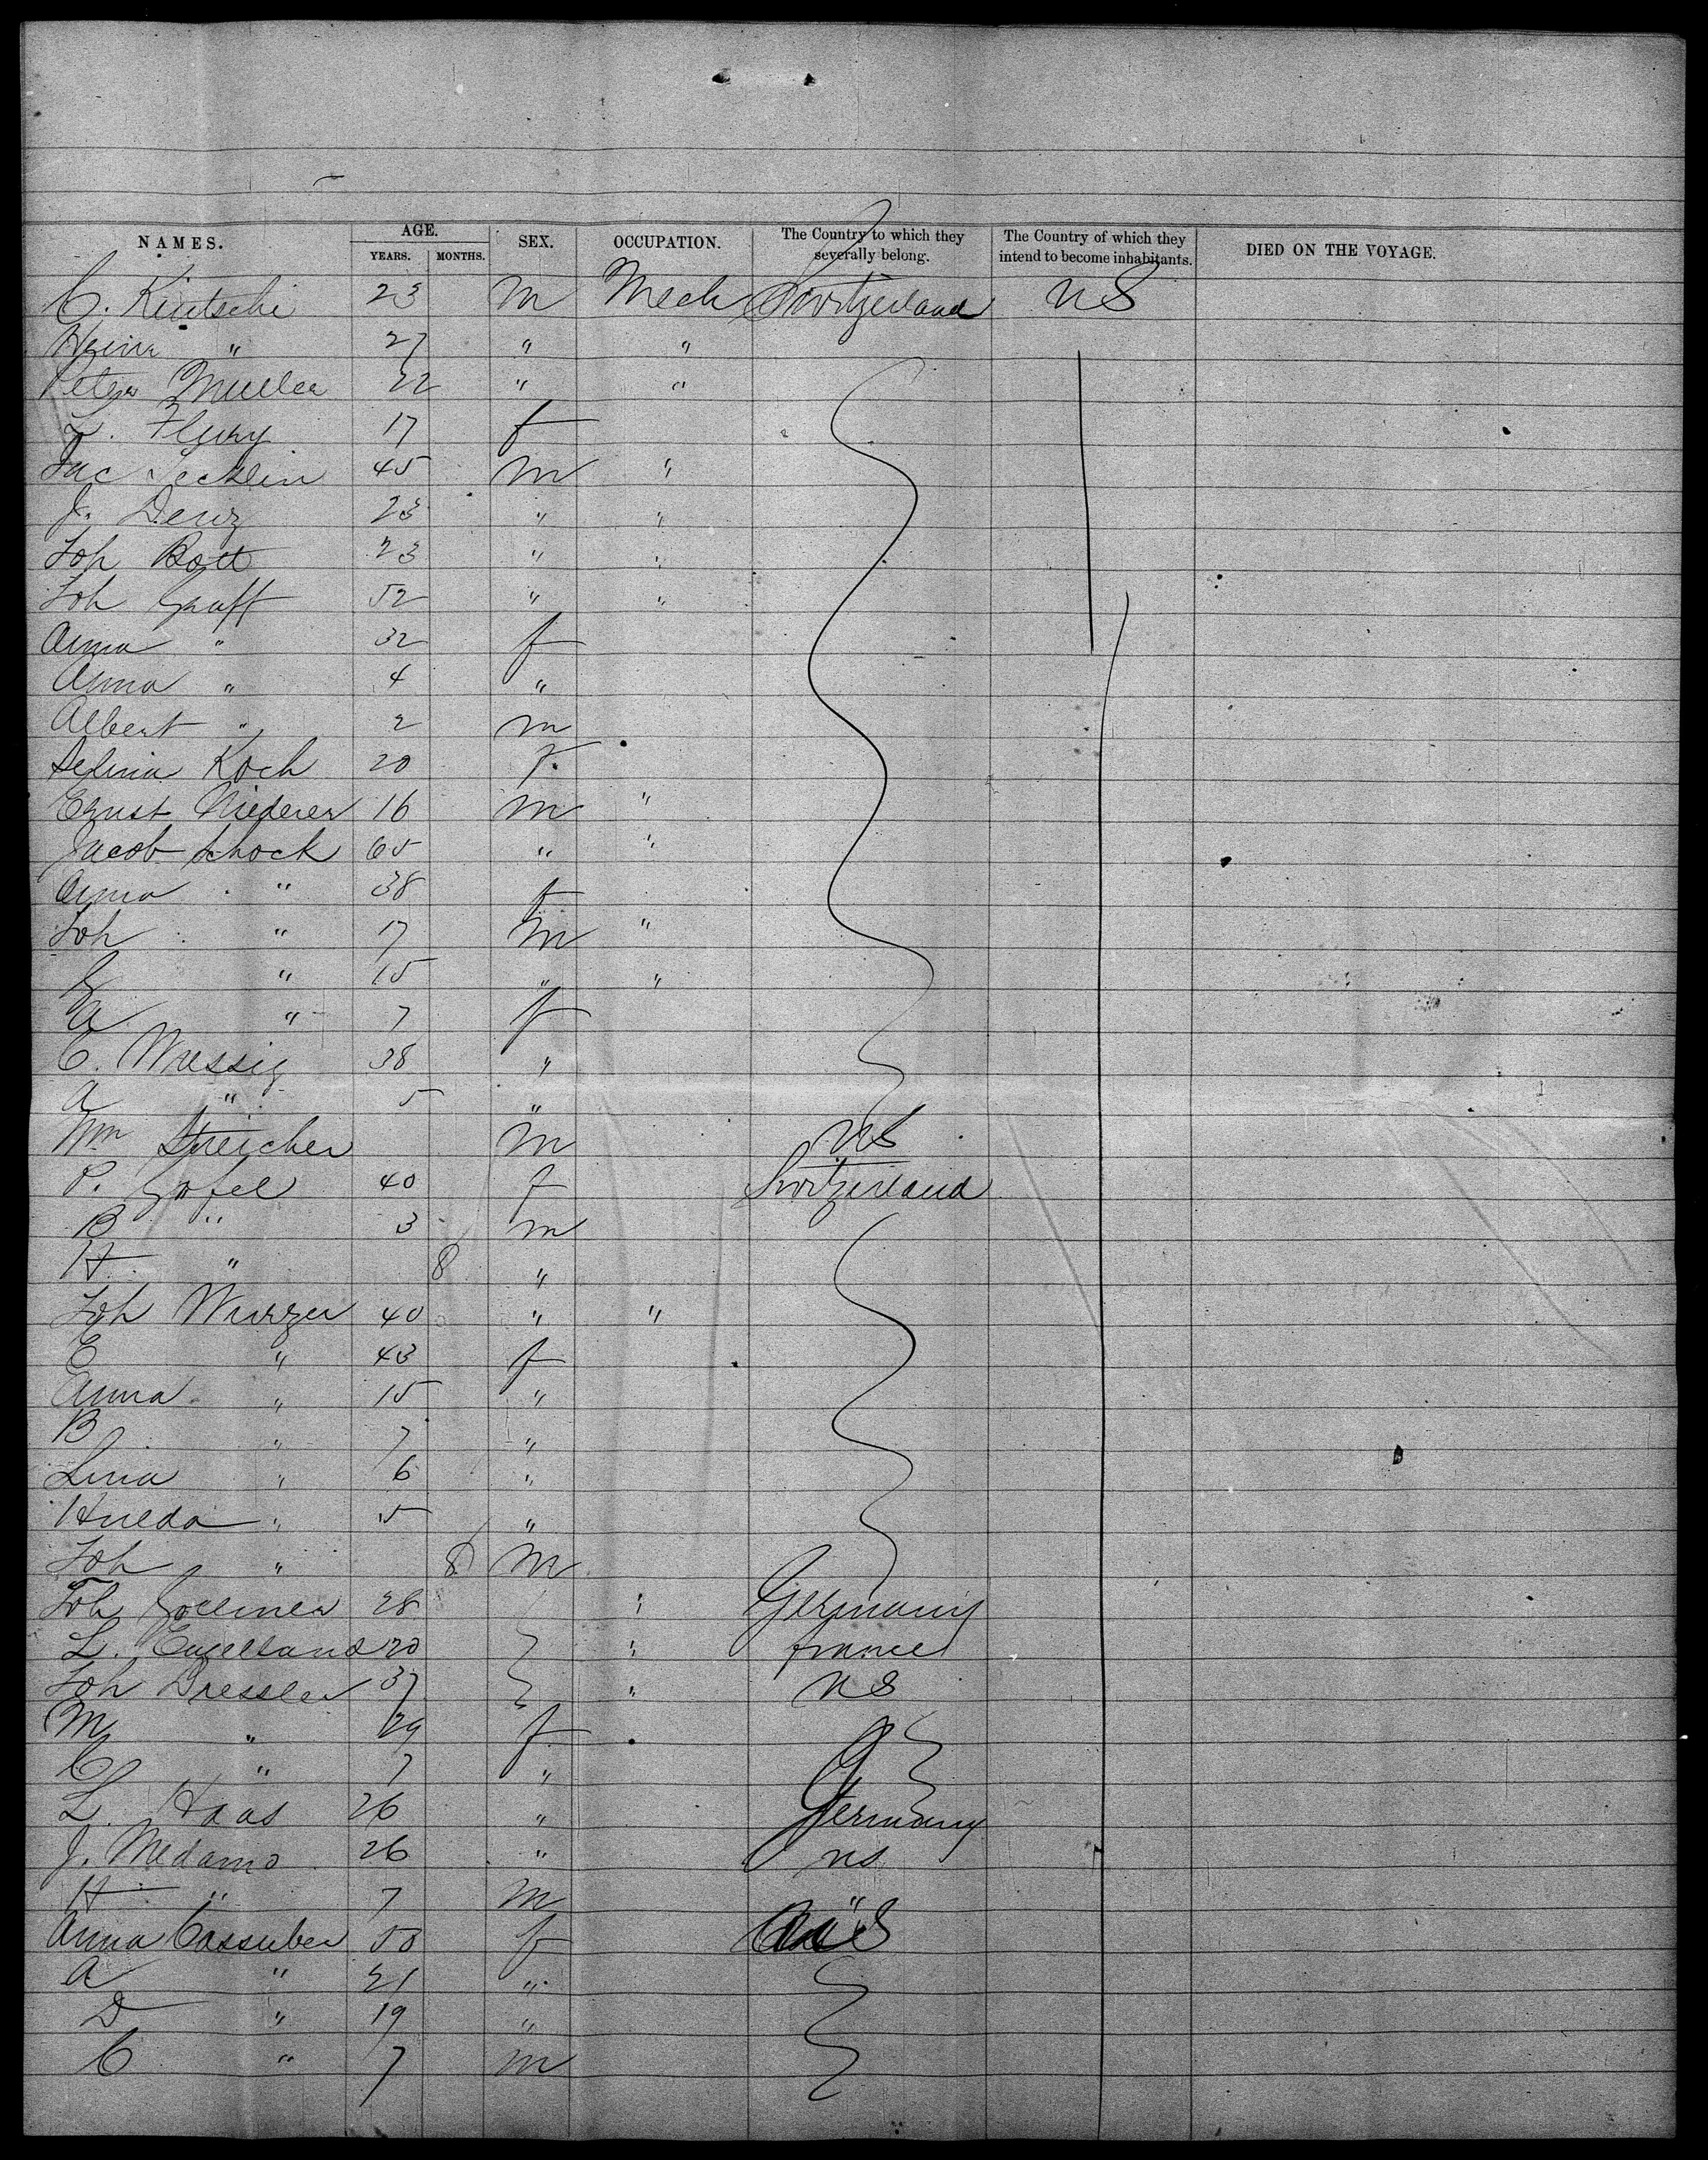 NAMES. AGE. YEARS. MONTHS. SEX. OCCUPATION. The Country to which they severally belong. The Country of which they intend to become inhabitants. DIED ON THE VOYAGE.
C. Kintschi 23 m Mech Switzerland US
Heinr " 27 " "
Peter Muller 22 " "
L. Flury 17 f
Jac 45 m "
J. Denz 23 " "
Joh Bott 23 " "
Joh Graff 52 " "
Anna " 32 f
Anna " 4 "
Albert " 2 m
Selina Koch 20 f
Ernst Niederer 16 m "
Jacob Schock 65 " "
Anna " 38 f
Joh " 17 m "
G " 15 " "
A " 7 f
C. Wussig 38 "
A " 5 "
Wm Streicher m US
P. Gofel 40 f Switzerland
B " 3 m
H " 8 "
Joh Wurzer 40 " "
E " 43 f
Anna " 15 "
B " 7 "
Lina " 6 "
Hulda " 5 "
Joh " 8 m
Joh 28 " Germany
L. 20 " France
Joh Dressler 37 " US
M " 29 f
C " 7 "
L. Haas 26 " Germany
J. Medamo 26 " US
H " 7 m "
Anna Cassuber 50 f US
A " 21 "
D " 19 "
C " 7 m